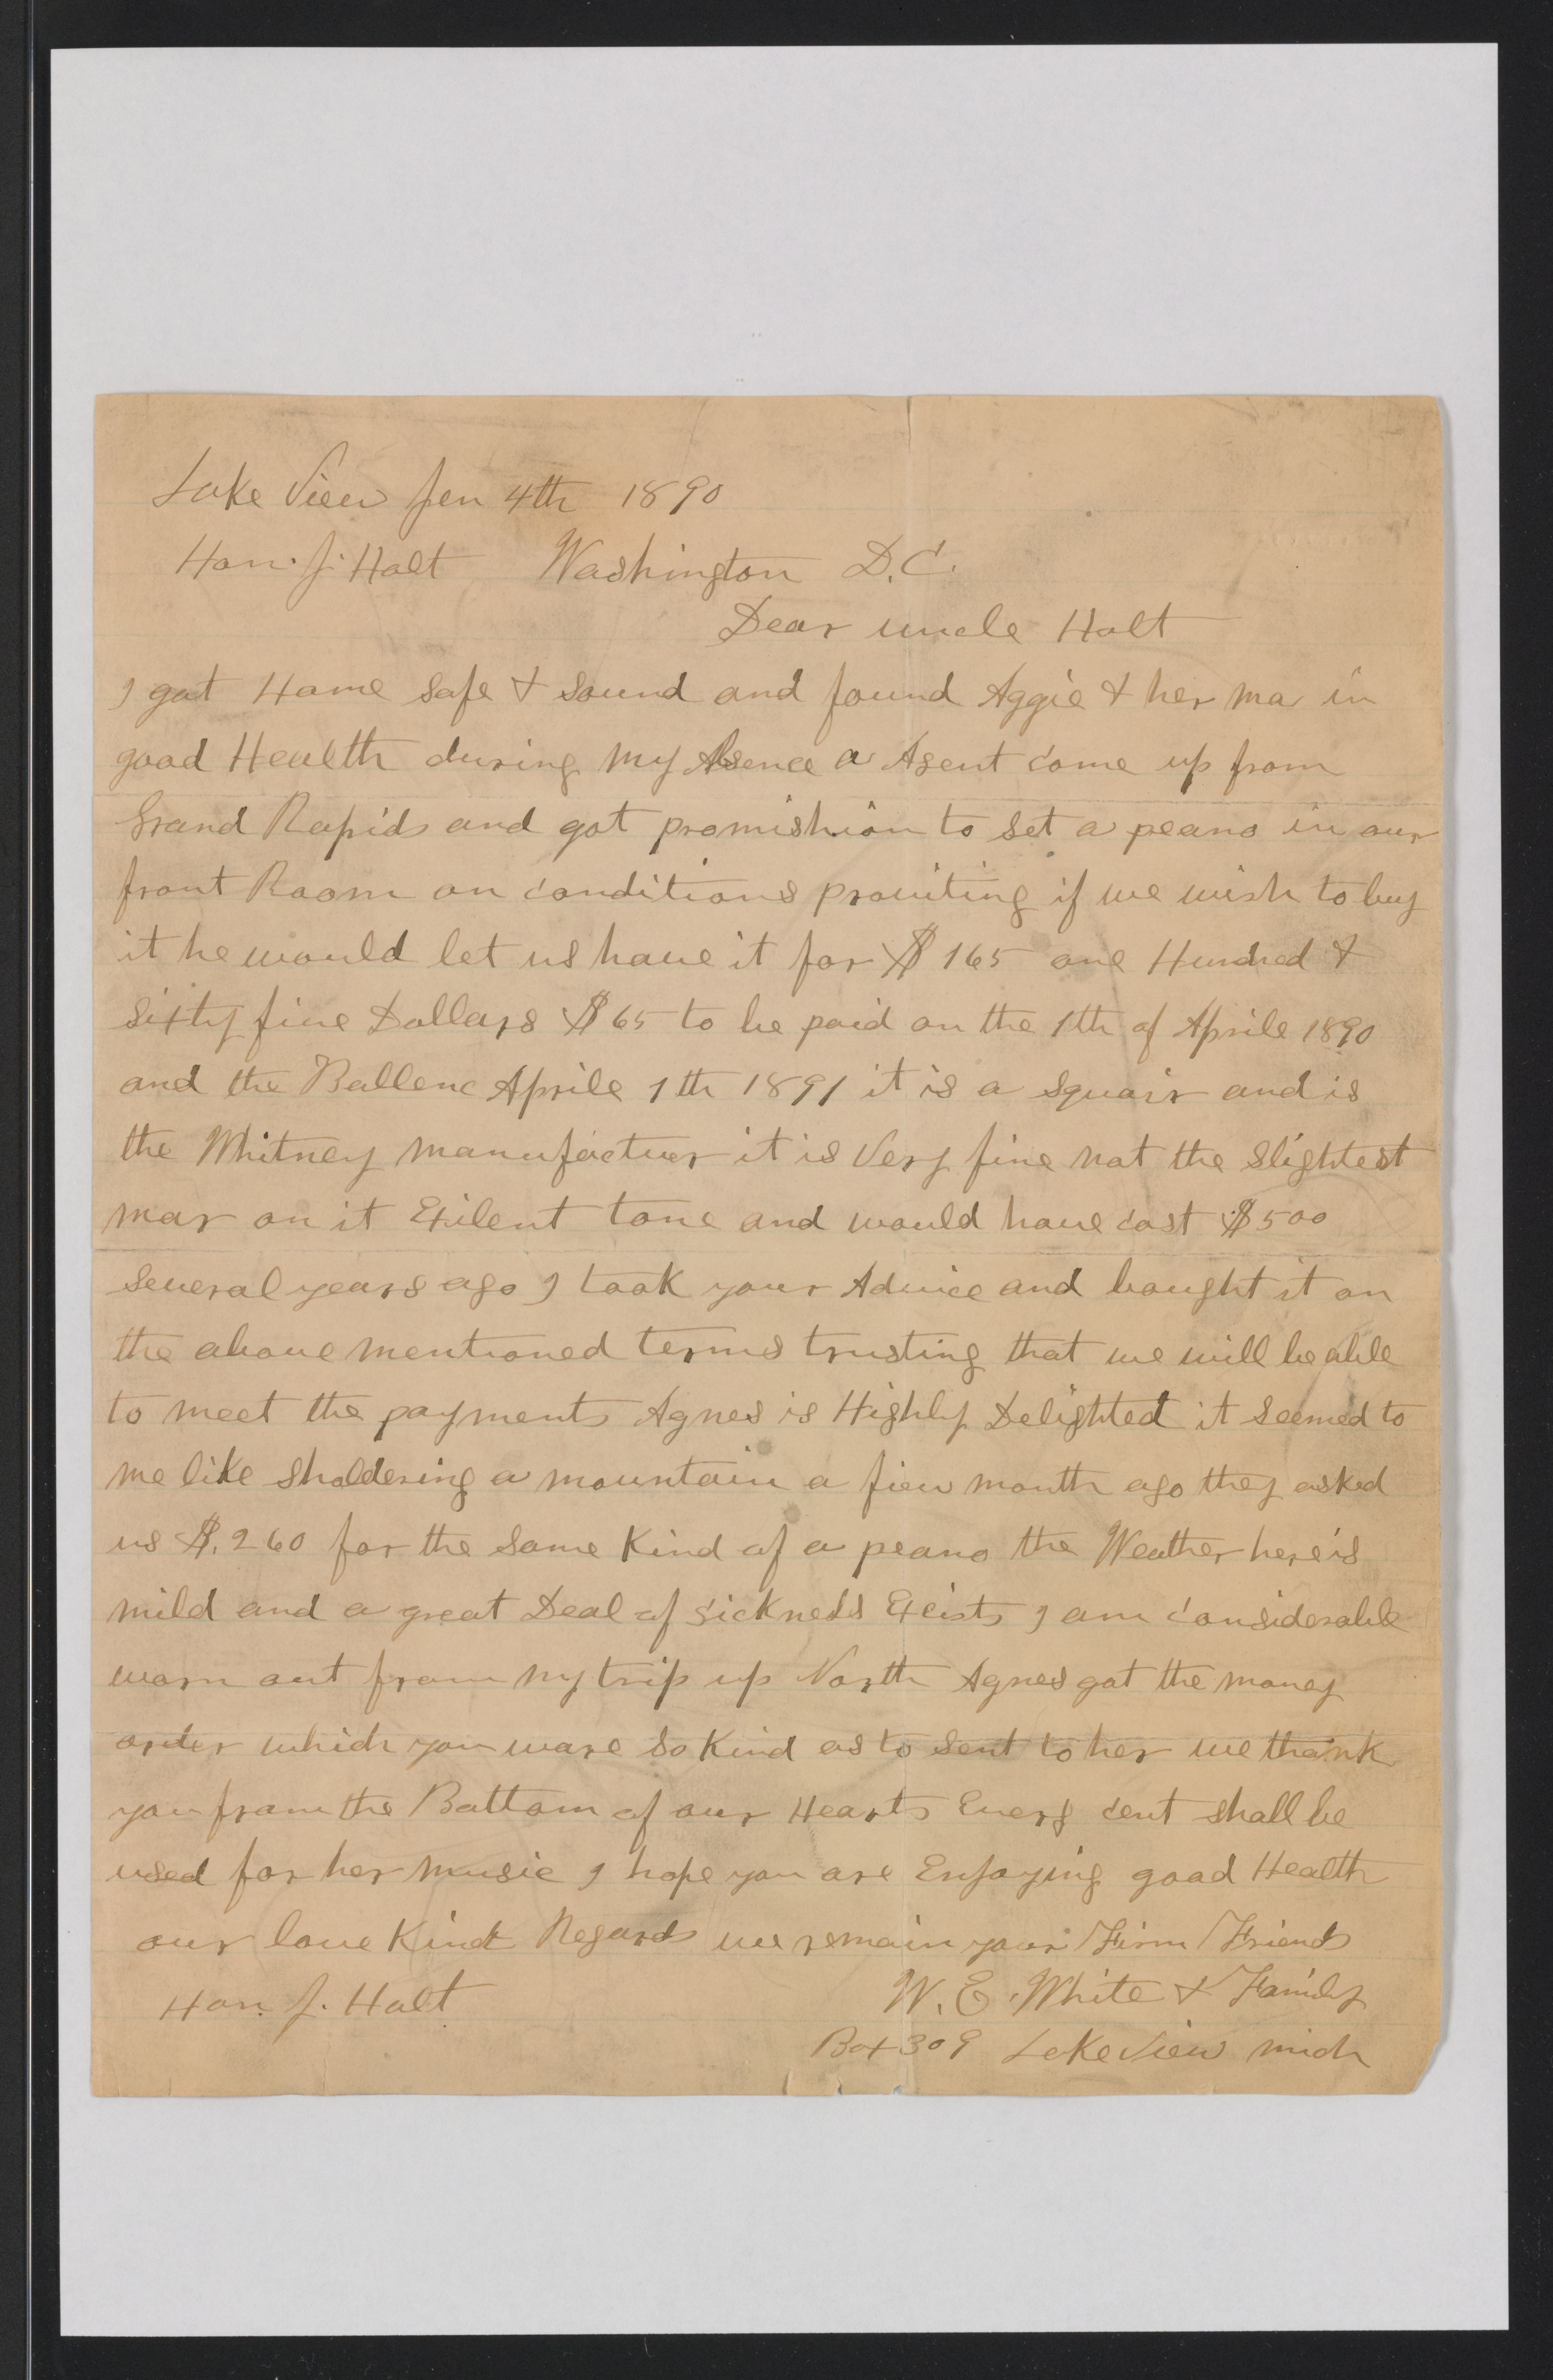 Lake View Jen 4th 1890
Hon. J. Holt Washington D.C.
Dear uncle Holt
I got Home safe & sound and found Aggie & her ma in
good Health during my Absence a Agent come up from
Grand Rapids and got promishion to set a peano in our
front Room on conditions proviting if we wish to buy
it he would let us have it for $165 one Hundred &
sixty five Dollars $65 to be paid on the 1th of Aprile 1890
and the Ballenc Aprile 1th 1891 it is a squair and is
the Whitney manufactuer it is Very fine not the slightest
mar on it Exilent tone and would have cost $500
several years ago I took your Advice and bought it on
the above mentioned terms trusting that we will be able
to meet the payments Agnes is Highly Delighted it seemed to
me like sholdering a mountain a fiew month ago they asked
us $.260 for the same Kind of a peano the Weather here is
mild and a great Deal of sickness Exists I am considerable
worn out from my trip up North Agnes got the money
order which you ware so Kind as to sent to her we thank
you from the Bottom of our Hearts Every cent shall be
used for her music I hope you are Enjoying good Health
our love Kind Regards we remain your Firm Friends
Hon. J. Holt W. E. White & Family
Box 309 LakeView mich